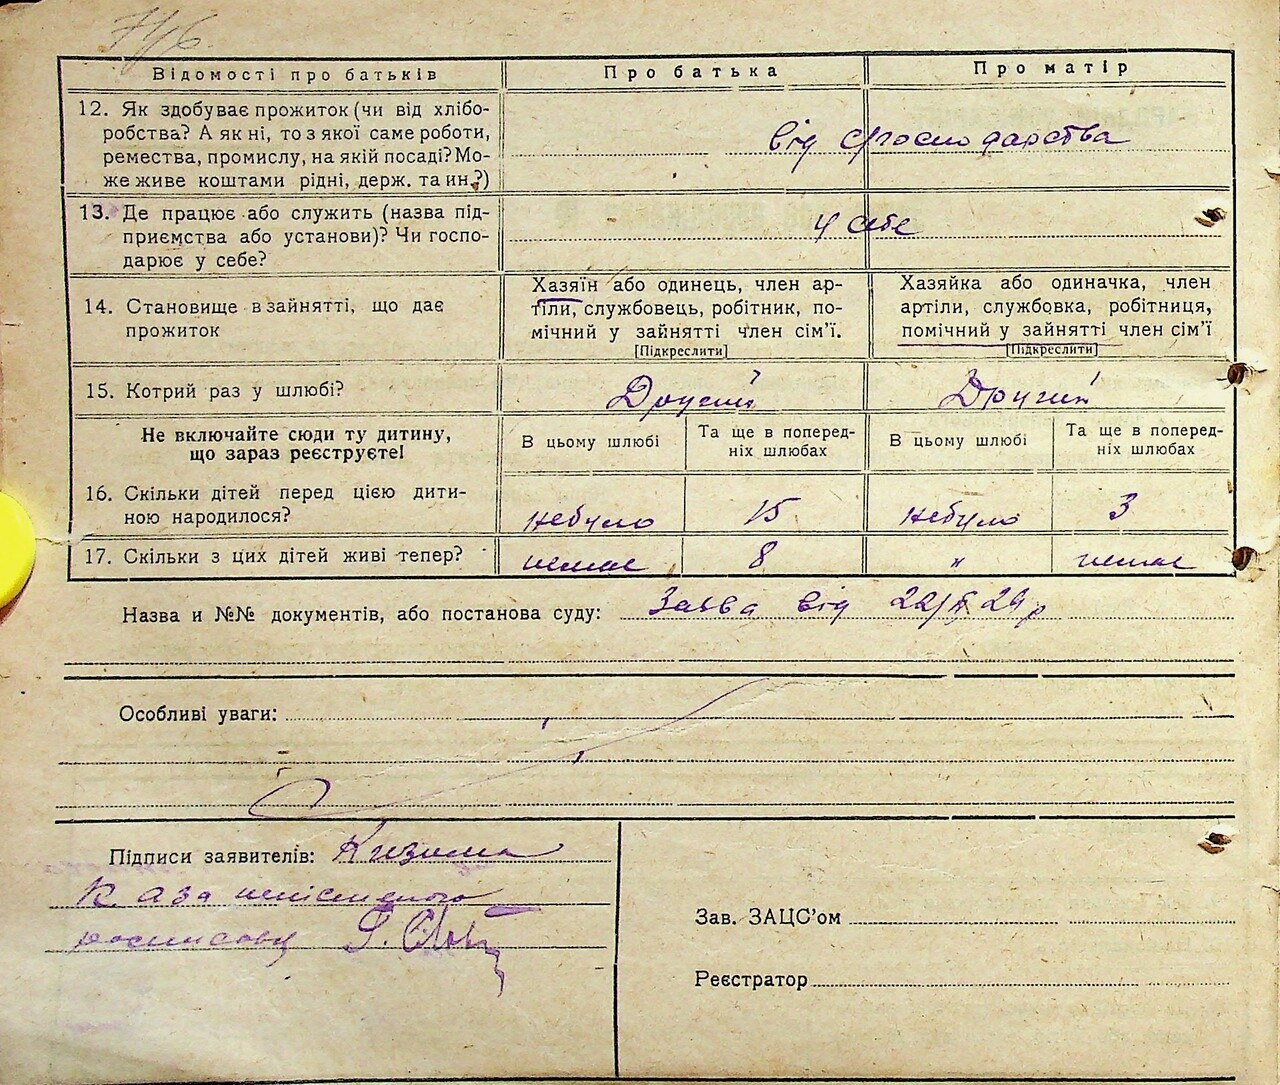 7/6
Відомості про батьків
Про батька
Про матір
12. Як здобуває прожиток (чи від хлібо-
робства? А як ні, то з якої саме роботи,
ремества, промислу, на якій посаді? Мо-
же живе коштами рідні, держ. та ин.?)
від с/господарства
13. Де працює або служить (назва під-
приємства або установи)? Чи госпо-
дарює у себе?
у себе
14. Становище в зайнятті, що дає
прожиток
Хазяїн або одинець, член ар-
тіли, службовець, робітник, по-
мічний у зайнятті член сім'ї.
[Підкреслити]
Хазяйка або одиначка, член
артіли, службовка, робітниця,
помічний у зайнятті член сім'ї
[Підкреслити]
15. Котрий раз у шлюбі?
Другий
Другий
Не включайте сюди ту дитину,
що зараз реєструєте!
В цьому шлюбі
Та ще в поперед-
ніх шлюбах
В цьому шлюбі
Та ще в поперед-
ніх шлюбах
16. Скільки дітей перед цією дити-
ною народилося?
небуло
15
небуло
3
17. Скільки з цих дітей живі тепер?
немає
8
"
немає
Назва и №№ документів, або постанова суду: Заява від 22/ 29 р
Особливі уваги:
Підписи заявителів: Кизима
К. а за неписьменого
росписавсь
Зав. ЗАЦС'ом
Реєстратор